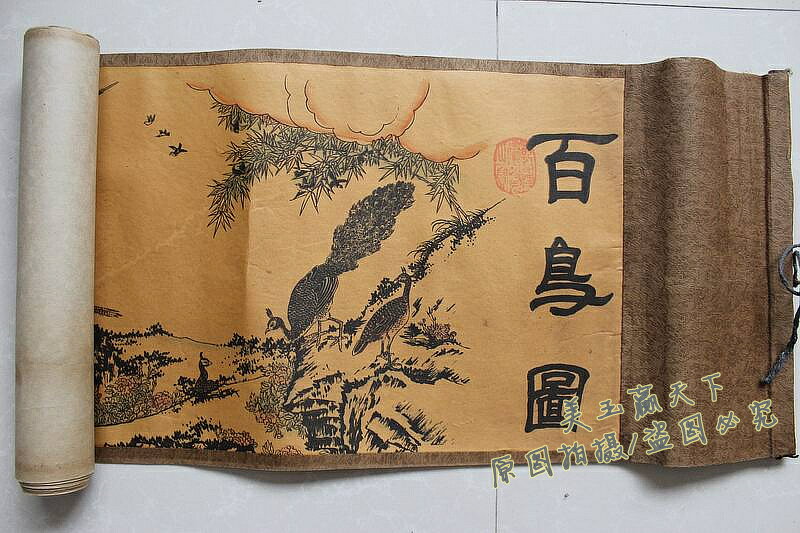 百鳥圖
美玉赢天下
原图拍摄/盗图必究